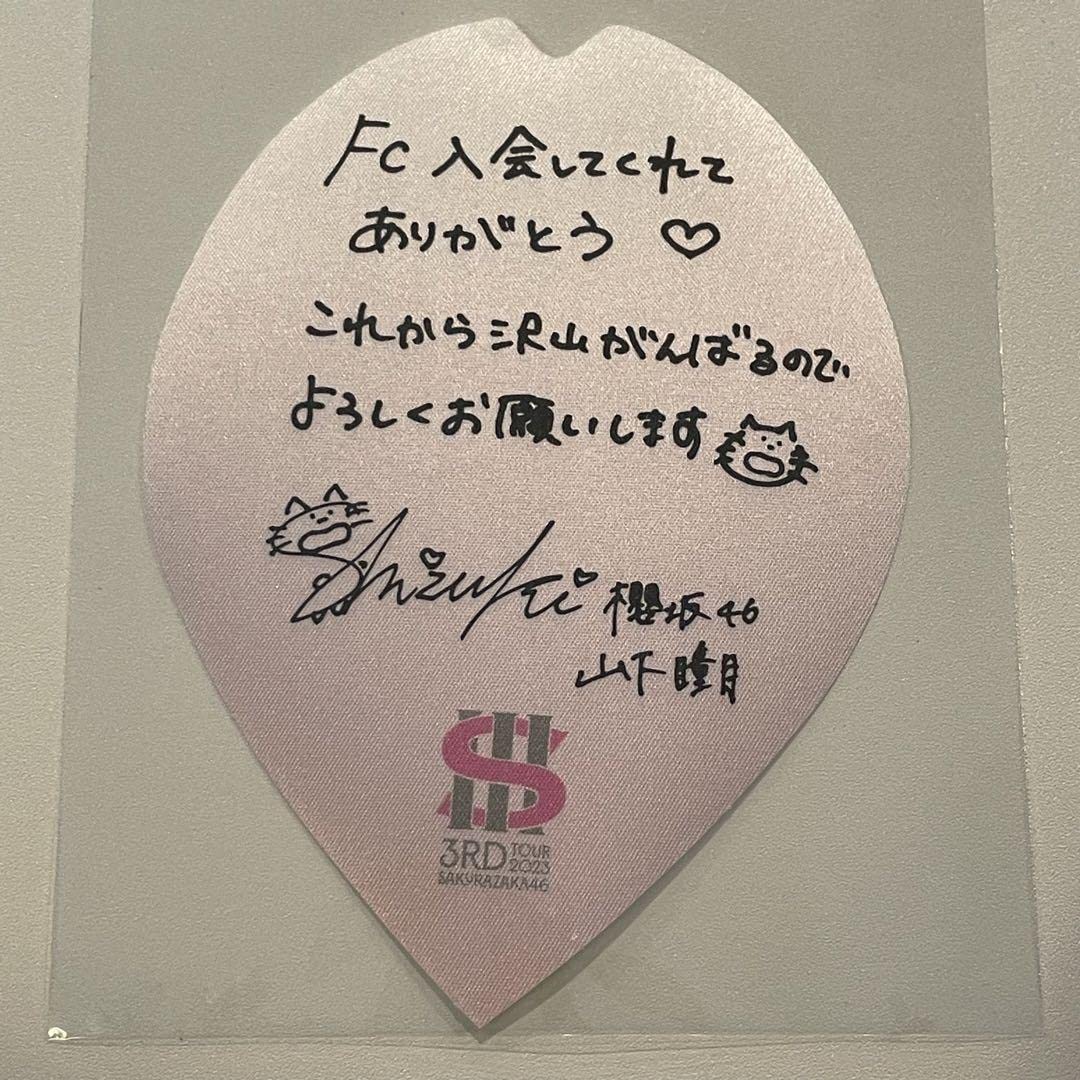 FC 入会してくれて
ありがとう ♡
これから沢山がんばるので
よろしくお願いします
Shizuki 櫻坂46
山下瞳月
S III
3RD TOUR 2023
SAKURAZAKA46